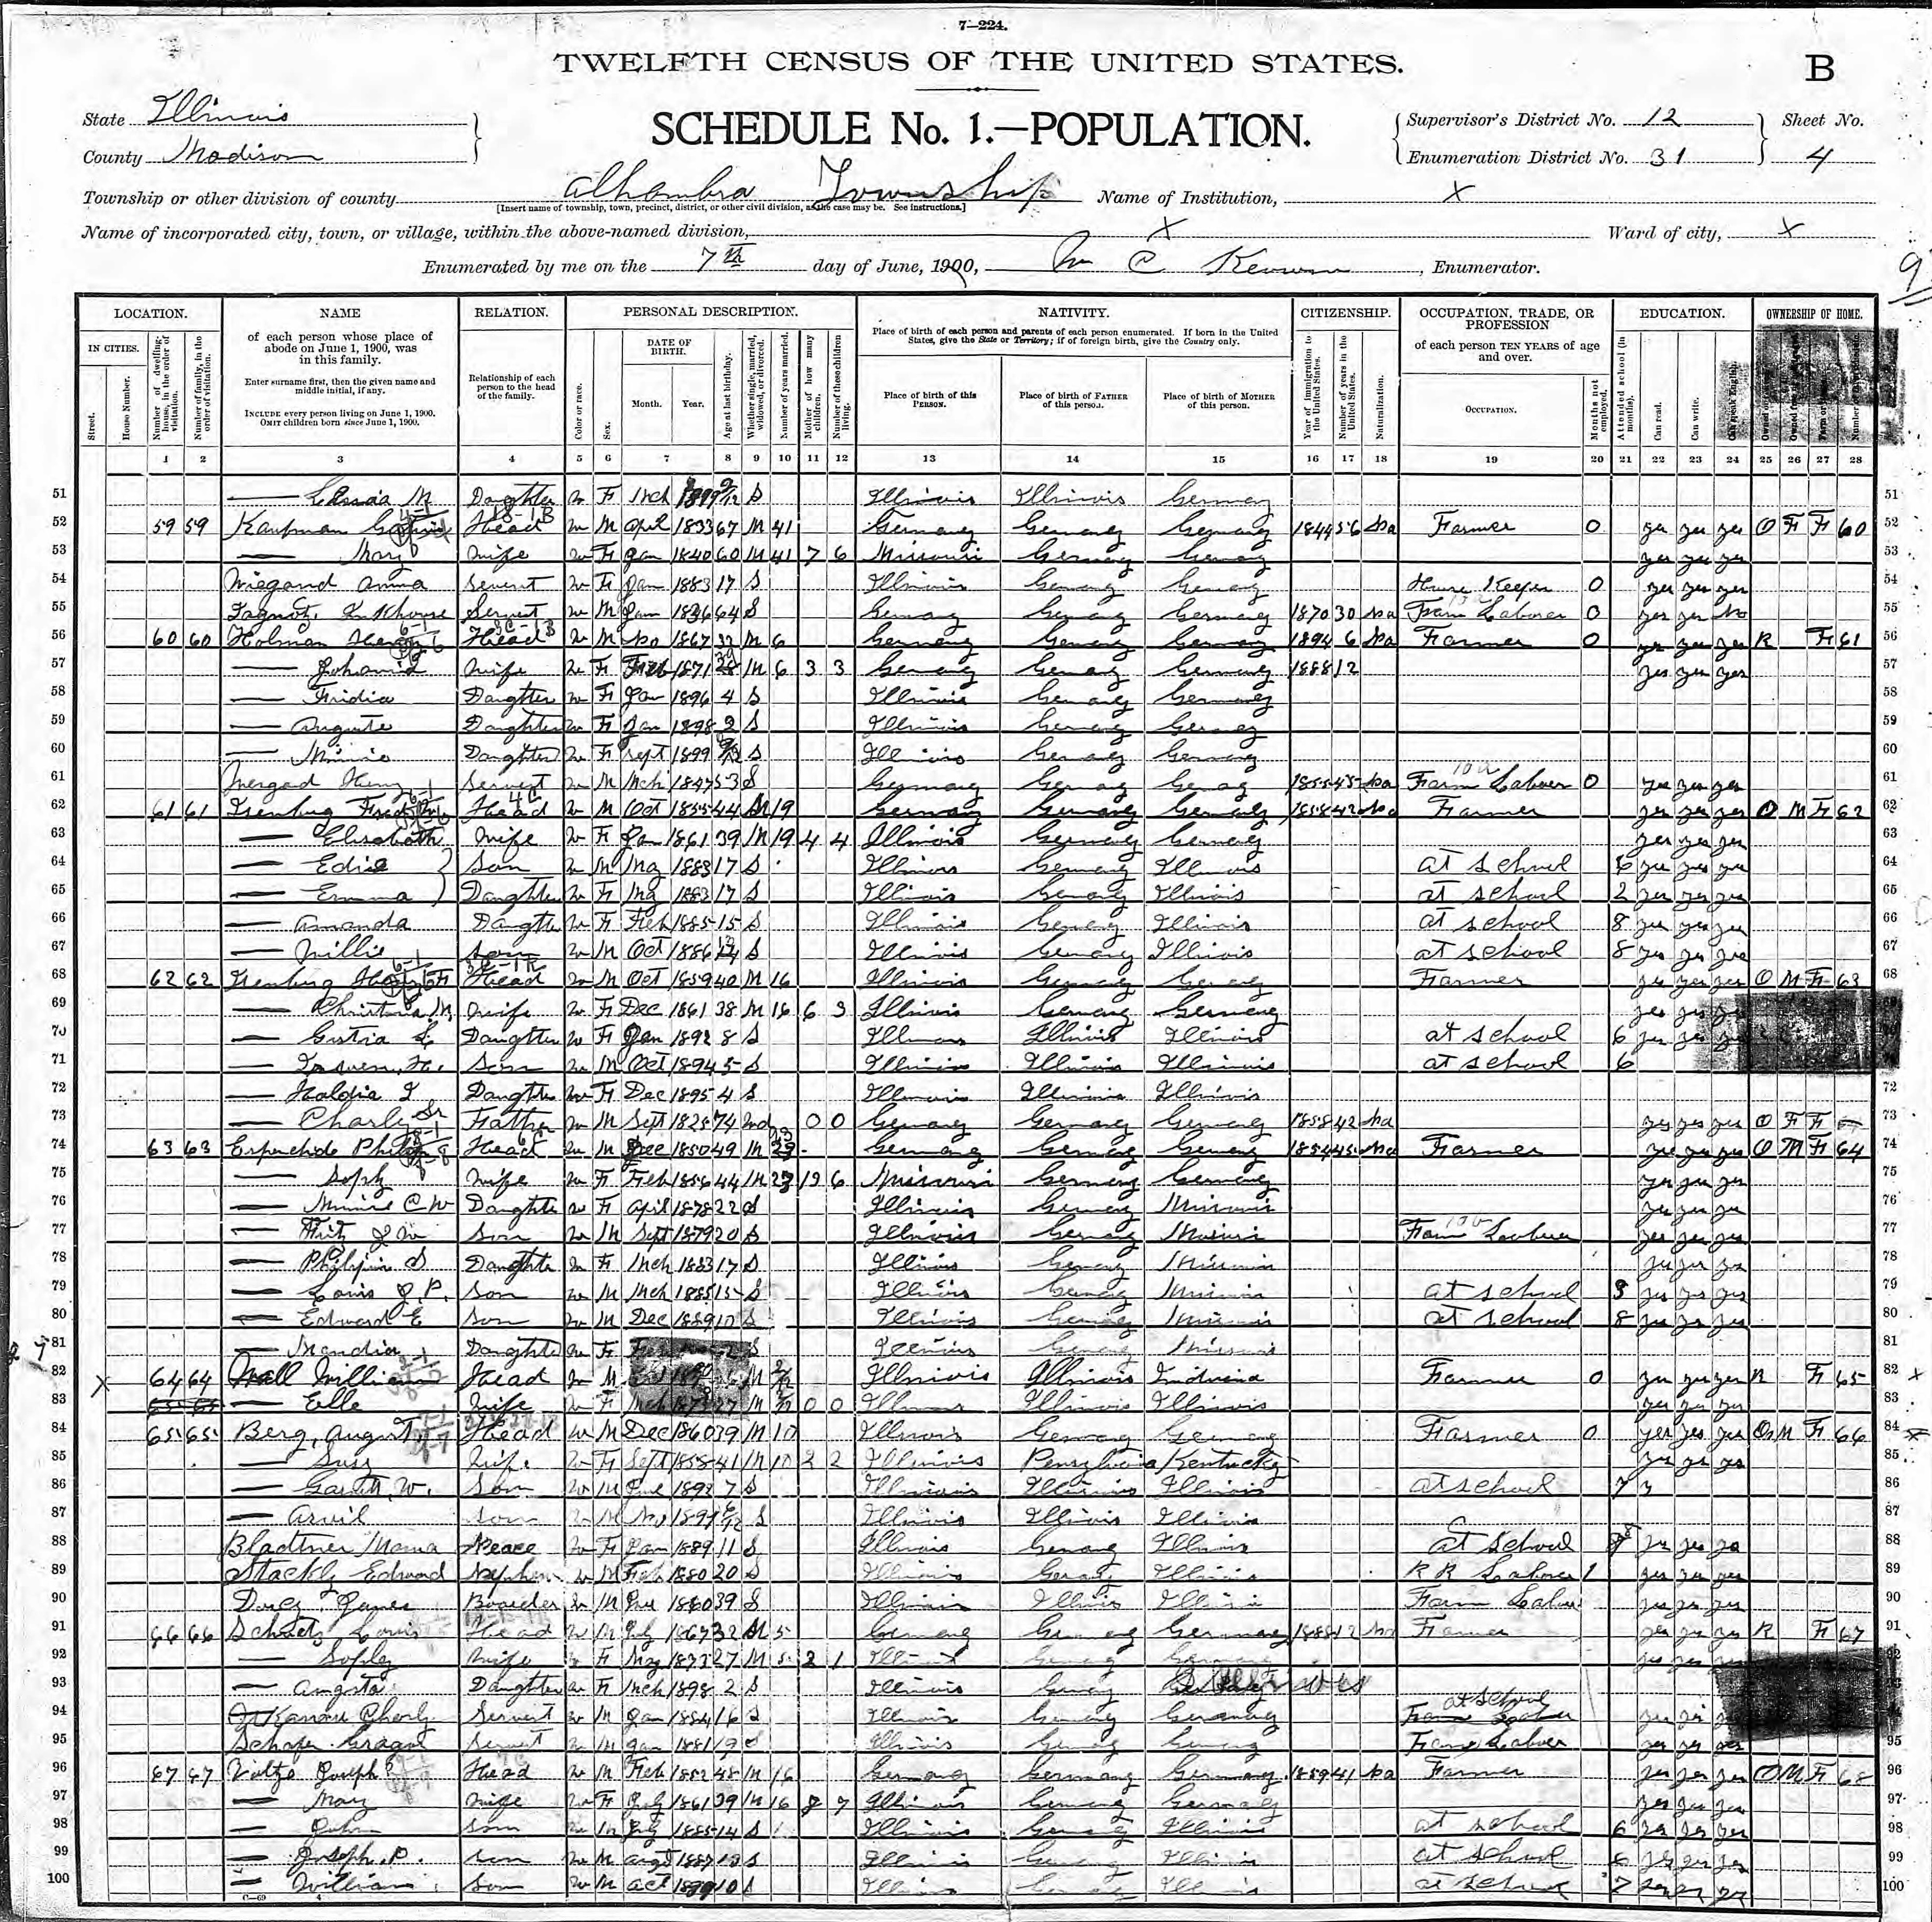 7—224.
TWELFTH CENSUS OF THE UNITED STATES.
B
State Illinois
County Madison
SCHEDULE No. 1.—POPULATION.
Supervisor's District No. 12
Enumeration District No. 31
Sheet No.
4
Township or other division of county Alhambra Township Name of Institution, X
[Insert name of township, town, precinct, district, or other civil division, as the case may be. See instructions.]
Name of incorporated city, town, or village, within the above-named division, X Ward of city, X
Enumerated by me on the 7th day of June, 1900, Wm C , Enumerator.
LOCATION. NAME RELATION. PERSONAL DESCRIPTION. NATIVITY. CITIZENSHIP. OCCUPATION, TRADE, OR PROFESSION EDUCATION. OWNERSHIP OF HOME.
IN CITIES.
Street.
House Number.
Number of dwelling-house, in the order of visitation.
Number of family, in the order of visitation.
of each person whose place of abode on June 1, 1900, was in this family.
Enter surname first, then the given name and middle initial, if any.
INCLUDE every person living on June 1, 1900.
OMIT children born since June 1, 1900.
Relationship of each person to the head of the family.
Color or race.
Sex.
DATE OF BIRTH.
Month. Year.
Age at last birthday.
Whether single, married, widowed, or divorced.
Number of years married.
Mother of how many children.
Number of these children living.
Place of birth of each person and parents of each person enumerated. If born in the United States, give the State or Territory; if of foreign birth, give the Country only.
Place of birth of this PERSON.
Place of birth of FATHER of this person.
Place of birth of MOTHER of this person.
Year of immigration to the United States.
Number of years in the United States.
Naturalization.
of each person TEN YEARS of age and over.
OCCUPATION.
Months not employed.
Attended school (in months).
Can read.
Can write.
Can speak English.
1 2 3 4 5 6 7 8 9 10 11 12 13 14 15 16 17 18 19 20 21 22 23 24 25 26 27 28
51 — M Daughter W F Mch 1899 S Illinois Illinois Germany 51
52 59 59 Kaufman Head W M April 1833 67 M 41 Germany Germany Germany 1844 56 Na Farmer 0 yes yes yes O F F 60 52
53 — Mary Wife W F Jan 1840 60 M 41 7 6 Missouri Germany Germany yes yes yes 53
54 Wiegand Anna Servent W F Jan 1883 17 S Illinois Germany Germany House Keeper 0 yes yes yes 54
55 Servent W M Jan 1836 64 S Germany Germany Germany 1870 30 Na Farm Laborer 0 yes yes No 55
56 60 60 Holman Henry Head W M No 1867 32 M 6 Germany Germany Germany 1894 6 Na Farmer 0 yes yes yes R F 61 56
57 — Johanna Wife W F Feb 1871 M 6 3 3 Germany Germany Germany 1888 12 yes yes yes 57
58 — Fridia Daughter W F Jan 1896 4 S Illinois Germany Germany 58
59 — Auguste Daughter W F Jan 1898 2 S Illinois Germany Germany 59
60 — Minnie Daughter W F Sept 1899 S Illinois Germany Germany 60
61 Henry Servent W M Mch 1847 53 S Germany Germany Germany 1855 45 Na Farm Laborer 0 yes yes yes 61
62 61 61 Head W M Oct 1855 44 M 19 Germany Germany Germany 1858 42 Na Farmer yes yes yes O M F 62 62
63 — Elisabath Wife W F Jan 1861 39 M 19 4 4 Illinois Germany Germany yes yes yes 63
64 — Edie Son W M May 1883 17 S Illinois Germany Illinois at school 6 yes yes yes 64
65 — Emma Daughter W F May 1883 17 S Illinois Germany Illinois at school 2 yes yes yes 65
66 — Amanda Daughter W F Feb 1885 15 S Illinois Germany Illinois at school 8 yes yes yes 66
67 — Willie son W M Oct 1886 S Illinois Germany Illinois at school 8 yes yes yes 67
68 62 62 Head W M Oct 1859 40 M 16 Illinois Germany Germany Farmer yes yes yes O M F 63 68
69 — Christina M Wife W F Dec 1861 38 M 16 6 3 Illinois Germany Germany yes yes 69
70 — Daughter W F Jan 1892 8 S Illinois Illinois Illinois at school 6 yes yes 70
71 — Son W M Oct 1894 5 S Illinois Illinois Illinois at school 6 71
72 — Daughter W F Dec 1895 4 S Illinois Illinois Illinois 72
73 — Charly Sr Father W M Sept 1825 74 Wd 0 0 Germany Germany Germany 1858 42 Na yes yes yes O F F 73
74 63 63 Philip Head W M Dec 1850 49 M 23 Germany Germany Germany 1854 45 Na Farmer yes yes yes O M F 64 74
75 — Sophy Wife W F Feb 1856 44 M 23 6 Missouri Germany Germany yes yes yes 75
76 — Minnie C W Daughter W F April 1878 22 S Illinois Germany Missouri yes yes yes 76
77 — Fritz J W Son W M Sept 1879 20 S Illinois Germany Missouri Farm Laborer yes yes yes 77
78 — Daughter W F Mch 1883 17 S Illinois Germany Missouri yes yes yes 78
79 — Louis J. P. Son W M Mch 1885 15 S Illinois Germany Missouri at school 8 yes yes yes 79
80 — Edward E Son W M Dec 1889 10 S Illinois Germany Missouri at school 8 yes yes yes 80
81 — Daughter W F S Illinois Germany Missouri 81
82 64 64 Wall William Head W M M Illinois Illinois Indiana Farmer 0 yes yes yes R F 65 82
83 — Elle Wife W F Mch 1873 27 M 0 0 Illinois Illinois Illinois yes yes yes 83
84 65 65 Berg, August Head W M Dec 1860 39 M 10 Illinois Germany Germany Farmer 0 yes yes yes O M F 66 84
85 — Susy Wife W F Sept 1858 41 M 10 2 2 Illinois Pensylvania Kentucky yes yes yes 85
86 — W. Son W M 1892 7 S Illinois Illinois Illinois at school 7 86
87 — Arvil Son W M Nov 1899 S Illinois Illinois Illinois 87
88 Bladtner Neace W F Jan 1889 11 S Illinois Germany Illinois at school yes yes yes 88
89 Stackly Edward Nephew W M Feb 1880 20 S Illinois Germany Illinois R R Laborer 1 yes yes yes 89
90 James Boarder W M 39 S Illinois Illinois Illinois Farm Labor yes yes yes 90
91 66 66 Louis Head W M July 1867 32 M 5 Germany Germany Germany 1888 12 Na Farmer yes yes yes R F 67 91
92 — Sophy Wife F May 1873 27 M 5 2 1 Illinois Germany Germany yes yes yes 92
93 — Augsta Daughter W F Mch 1898 2 S Illinois Germany Illinois 93
94 Charly Servert W M Jan 1884 16 S Illinois Germany Germany at school yes yes 94
95 Servert W M Jan 1881 19 S Illinois Germany Germany Farm Labor yes yes yes 95
96 67 67 Joseph Head W M Feb 1852 48 M 16 Germany Germany Germany 1859 41 Na Farmer yes yes yes O M F 68 96
97 — Mary Wife W F July 1861 39 M 16 8 7 Illinois Germany Germany yes yes yes 97
98 — John Son W M July 1885 14 S Illinois Germany Illinois at school 6 yes yes yes 98
99 — Joseph P. son W M Augst 1887 S Illinois Germany Illinois at school 6 yes yes yes 99
100 — William Son W M Oct 1889 10 S Illinois Germany Illinois at school 7 yes yes yes 100